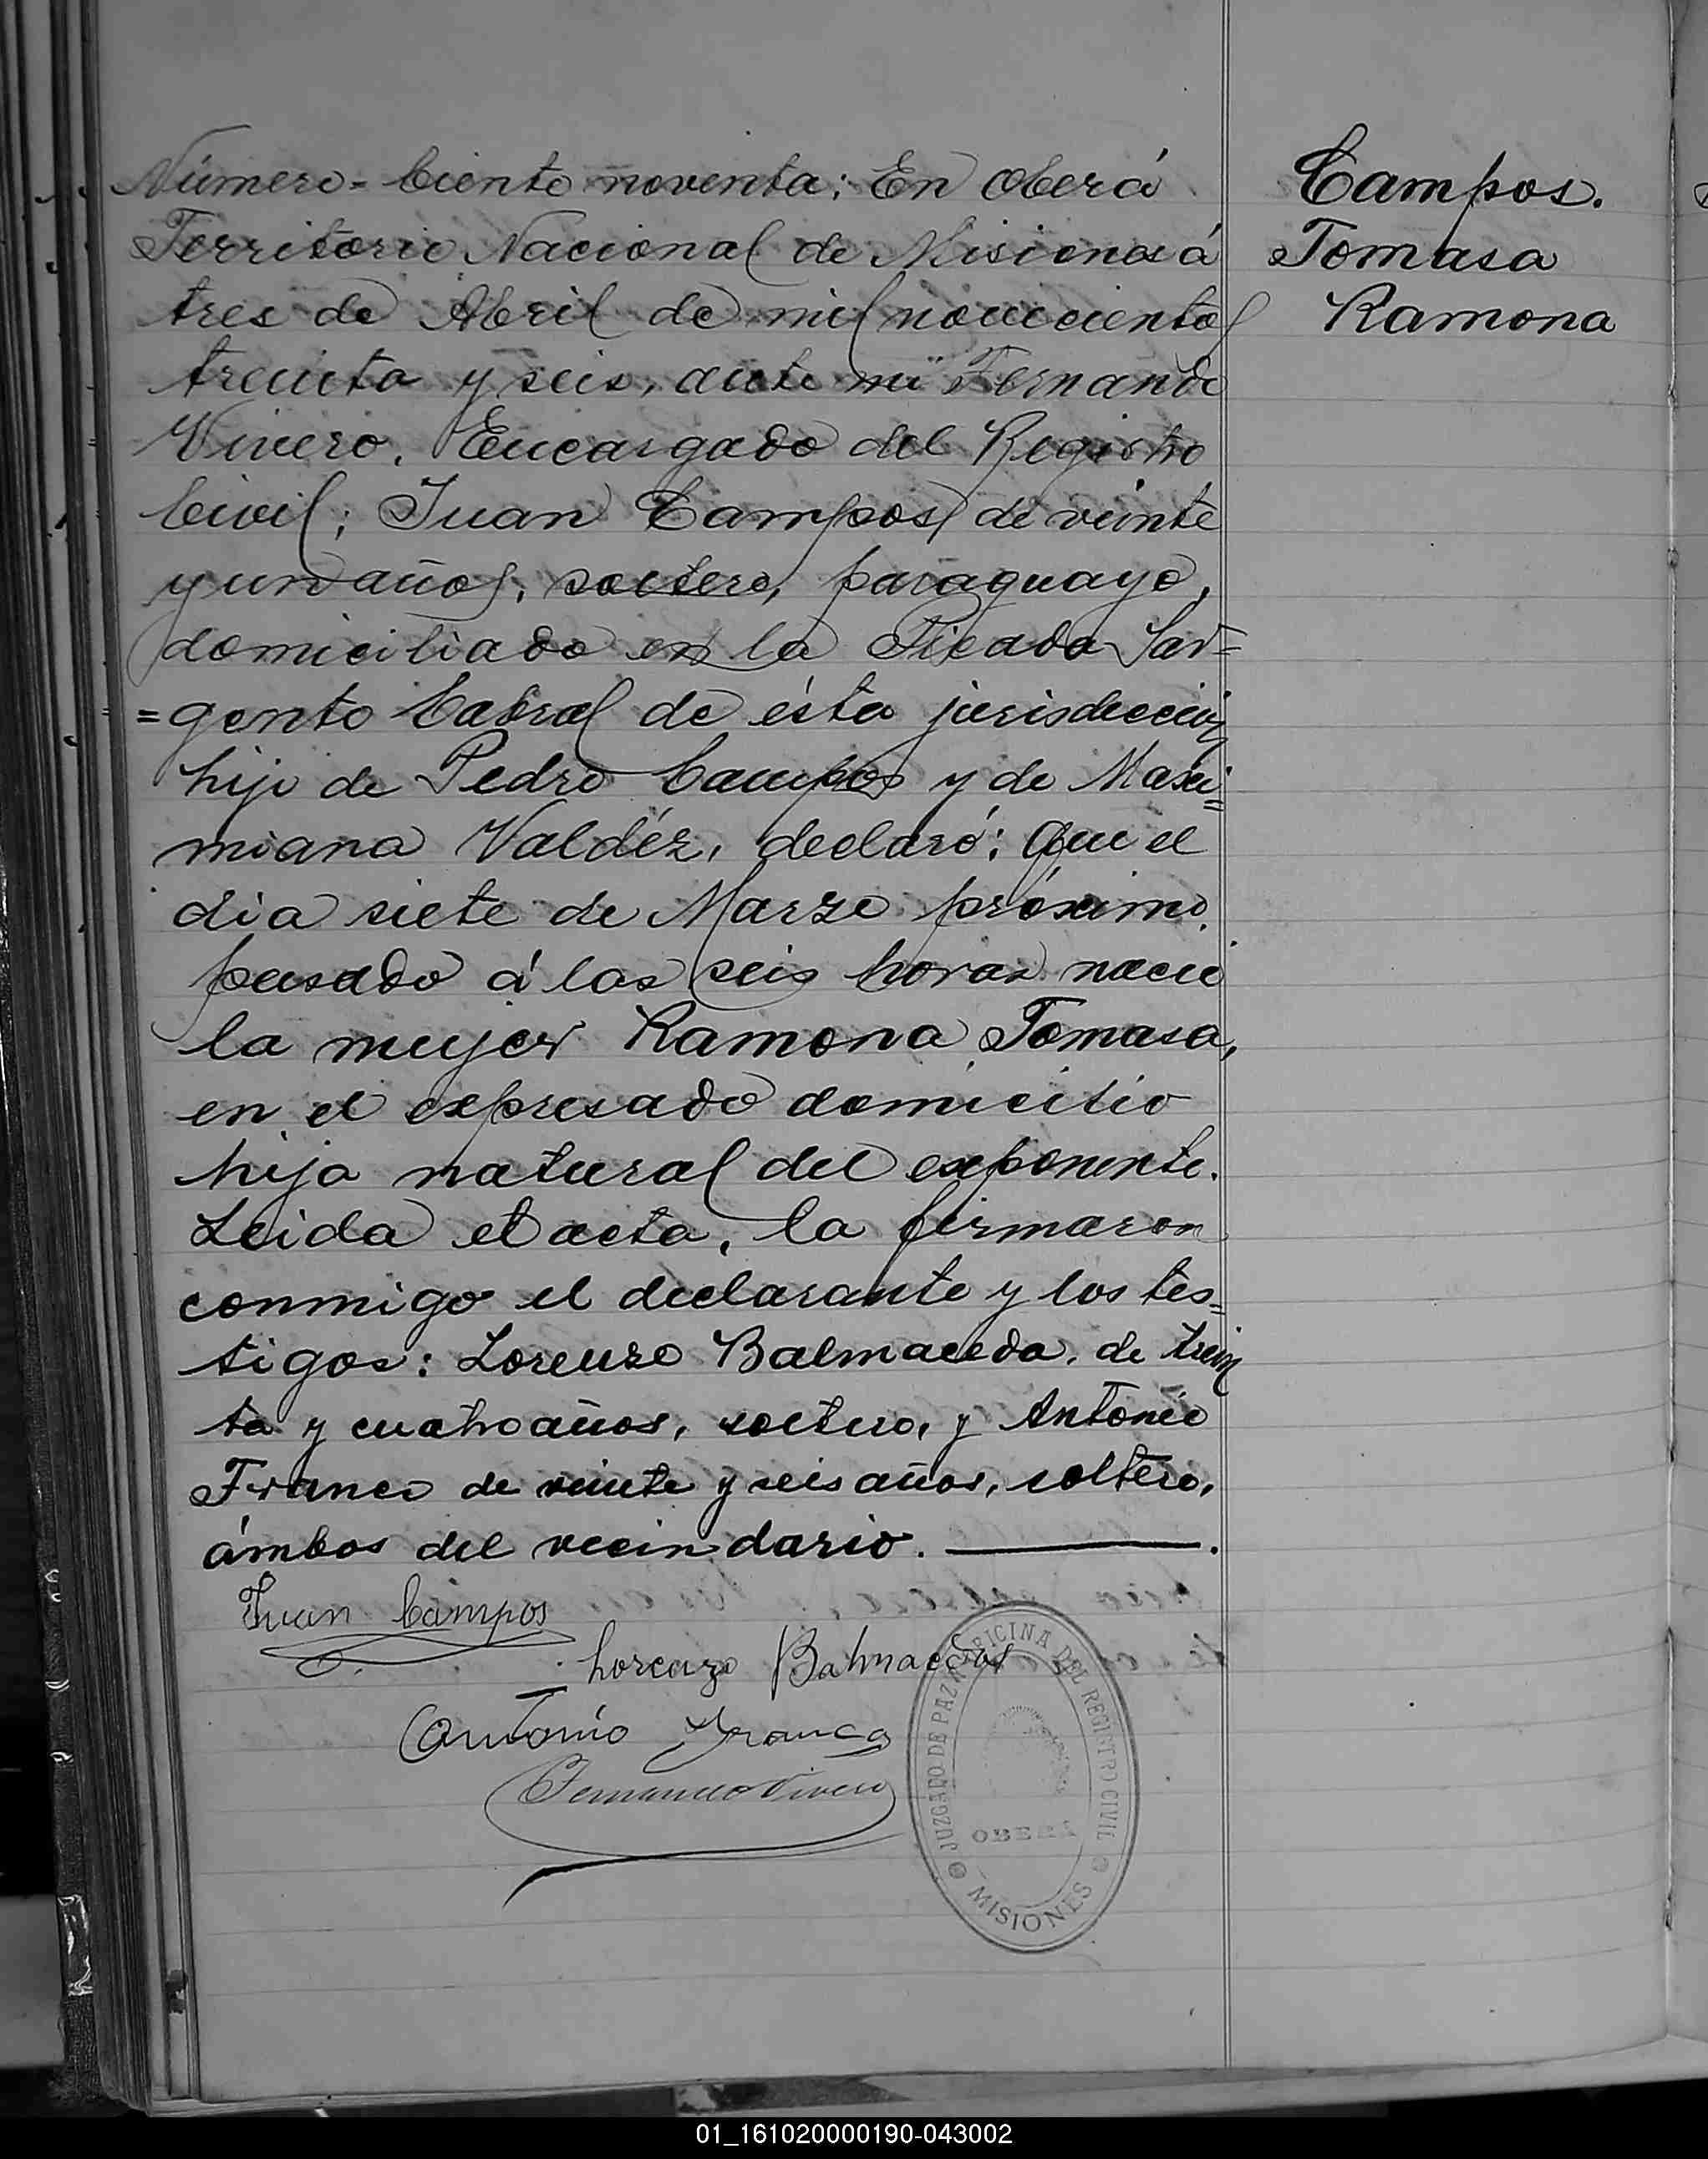 Número = Ciento noventa: En Oberá
Territorio Nacional de Misiones á
tres de Abril de mil novecientos
treinta y seis, ante mi Fernando
Vivero, Encargado del Registro
Civil; Juan Campos de veinte
y un años, soltero, paraguayo,
domiciliado en la Picada Sar=
=gento Cabral de ésta jurisdicción
hijo de Pedro Campos y de Maxi=
miana Valdéz, declaró: Que el
dia siete de Marzo próximo
pasado á las seis horas nació
la mujer Ramona Tomasa,
en el expresado domicilio
hija natural del exponente.
Leida el acta, la firmaron
conmigo el declarante y los tes=
tigos: Lorenzo Balmaceda, de trein
ta y cuatro años, soltero, y Antonio
Franco de veinte y seis años, soltero,
ámbos del vecindario. ———.
Campos.
Tomasa
Ramona
Juan Campos
Lorenzo Balmacedas
Antonio Franco
Fernando Vivero
JUZGADO DE PAZ OFICINA DEL REGISTRO CIVIL
OBERÁ
MISIONES
01_161020000190-043002